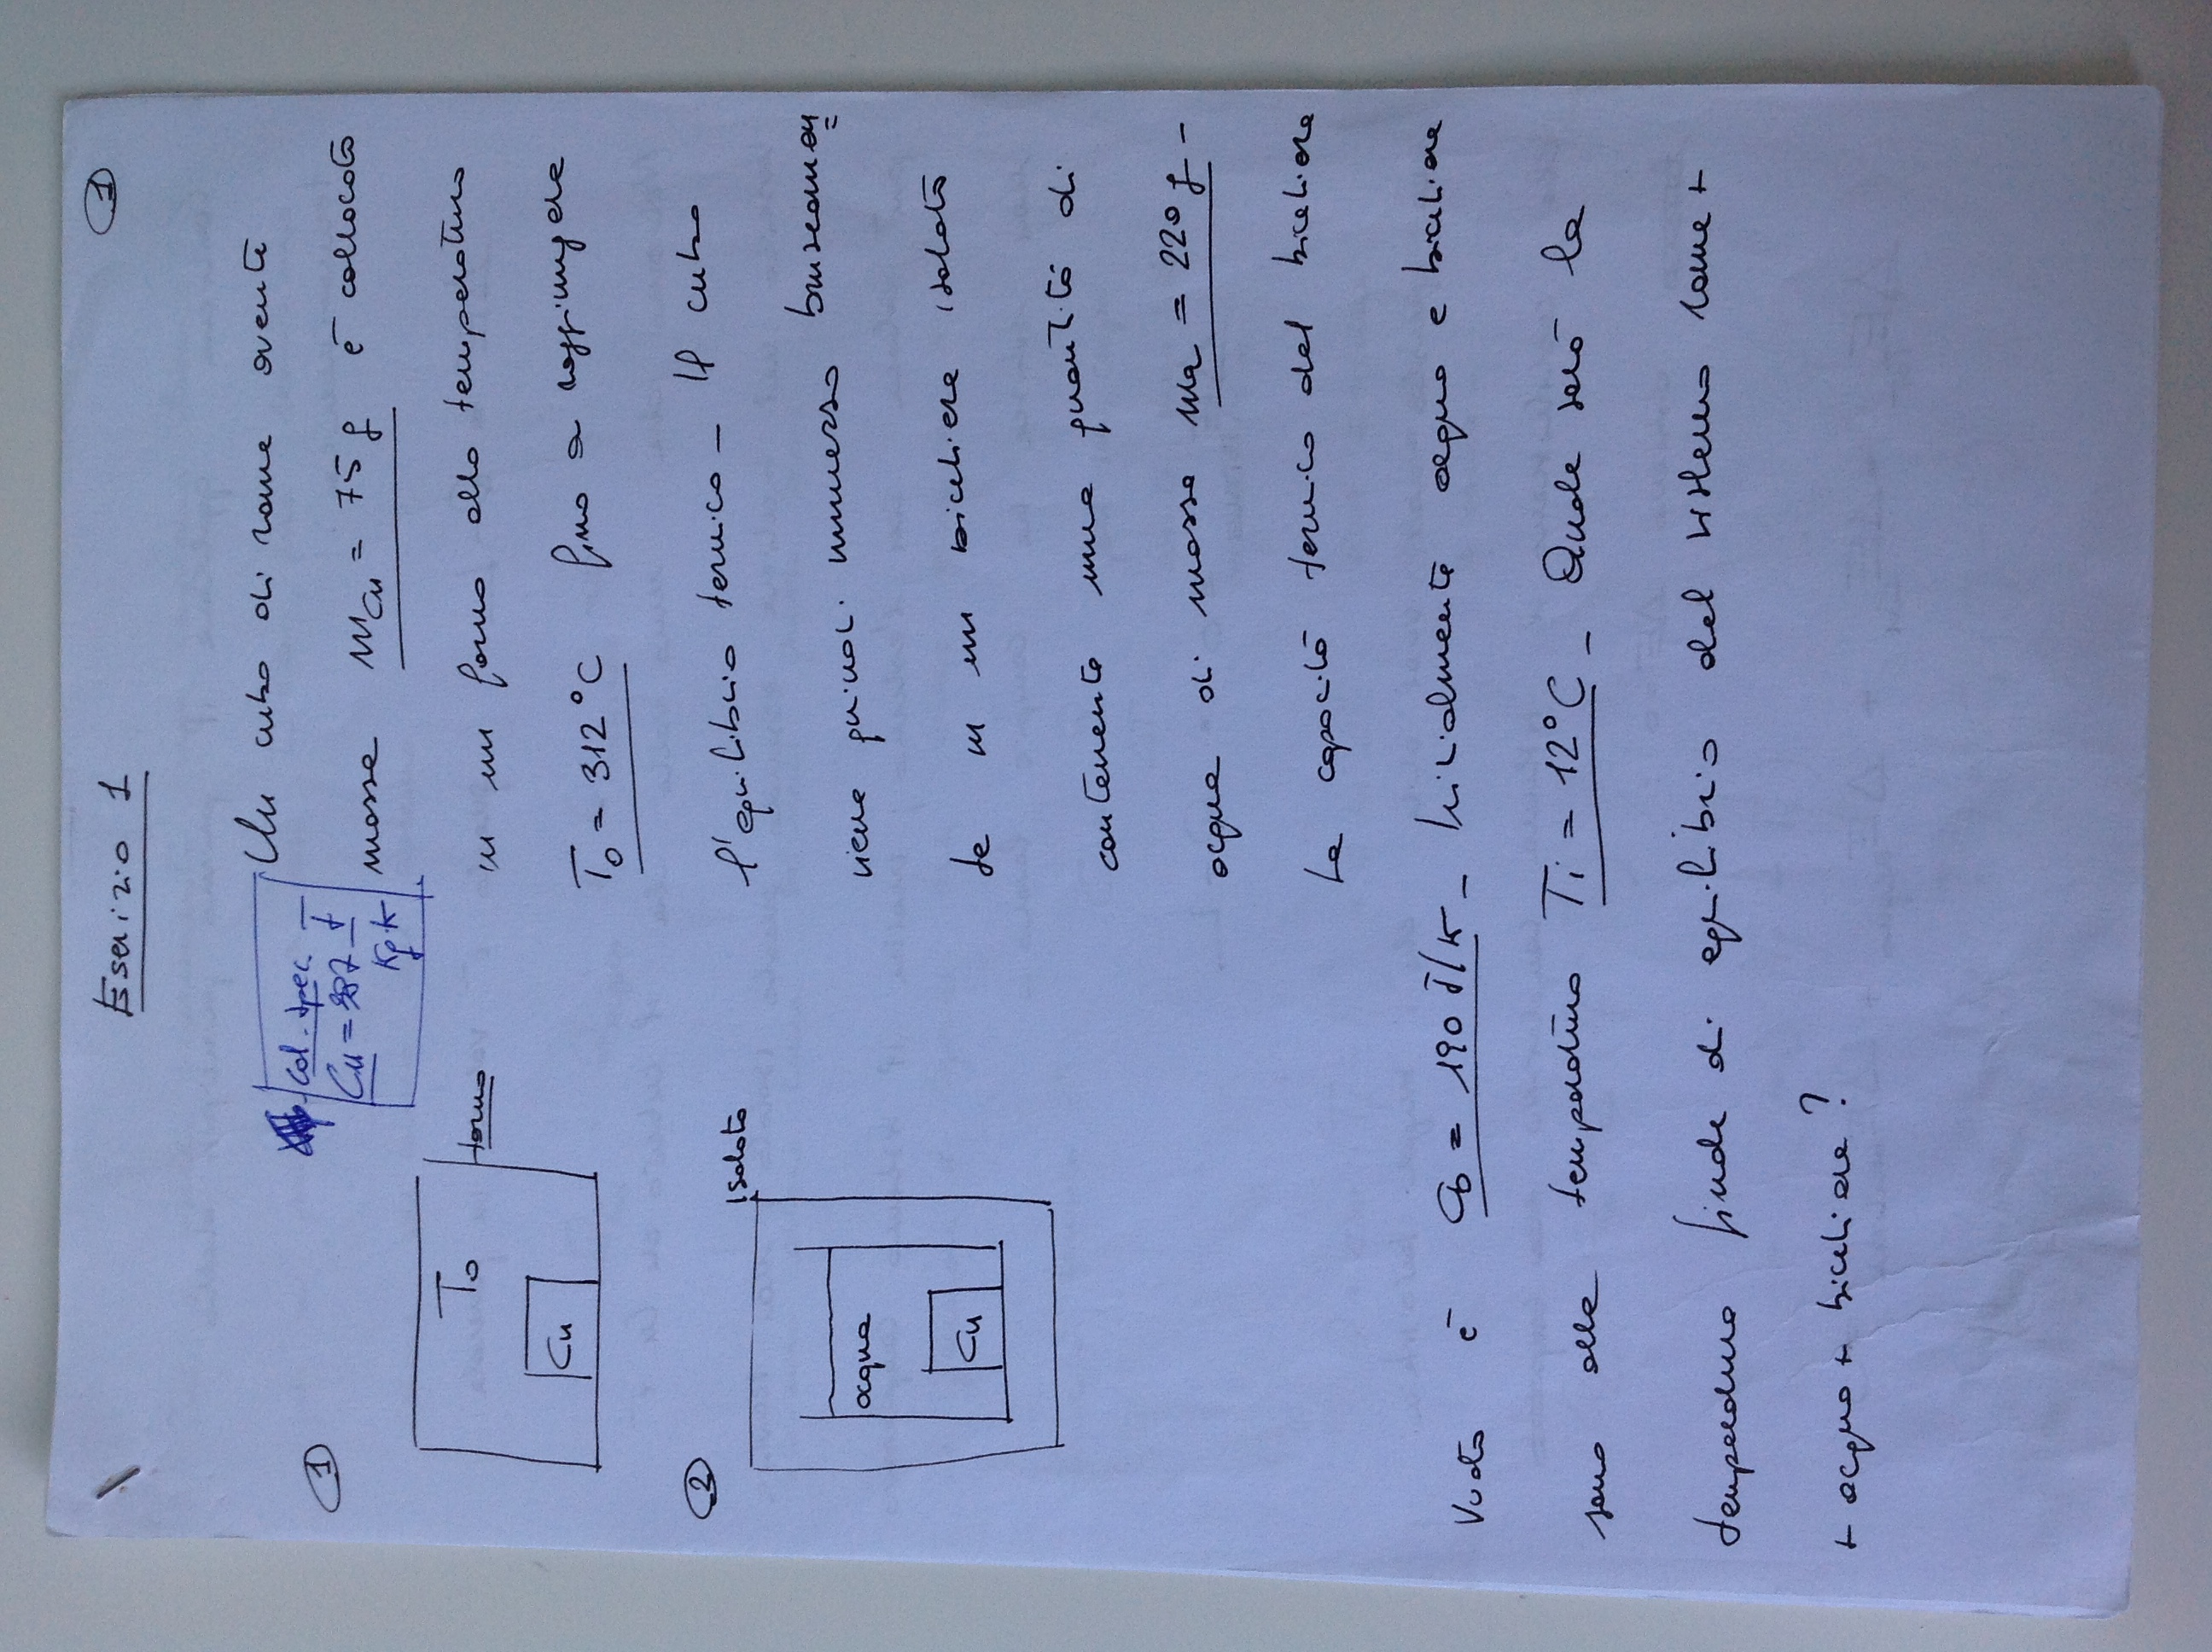 Esercizio 1
1
1
Cal. spec.
Cu = 387 J
Kg·K
Un cubo di rame avente
massa mCu = 75 g è collocato
T0
forno
in un forno alla temperatura
Cu
T0 = 312°C fino a raggiungere
2
l'equilibrio termico - Il cubo
Isolato
viene quindi immerso bruscamen
acqua
te in un bicchiere isolato
Cu
contenente una quantità di
acqua di massa ma = 220 g -
La capacità termica del bicchiere
vuoto è Cb = 190 J/K - Inizialmente acqua e bicchiere
sono alla temperatura Ti = 12°C - Quale sarà la
temperatura finale di equilibrio del sistema rame +
+ acqua + bicchiere?